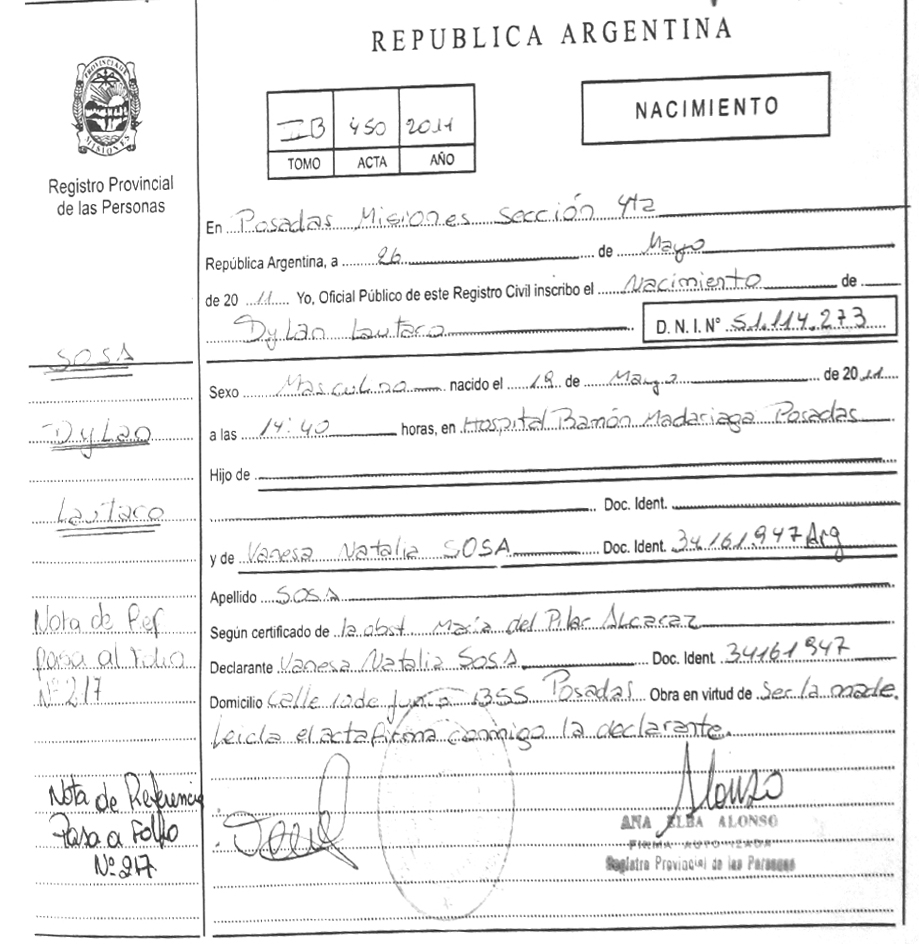 REPUBLICA ARGENTINA
PROVINCIA DE MISIONES
Registro Provincial
de las Personas
II B 450 2011
TOMO ACTA AÑO
NACIMIENTO
En Posadas Misiones Sección 4ta
República Argentina, a 26 de Mayo
de 20 11 Yo, Oficial Público de este Registro Civil inscribo el Nacimiento de
Dylan Lautaro D. N. I. Nº 51.114.273
SOSA
Dylan
Lautaro
Sexo Masculino nacido el 18 de Mayo de 20 11
a las 14:40 horas, en Hospital Ramón Madariaga Posadas
Hijo de
Doc. Ident.
y de Vanesa Natalia SOSA Doc. Ident. 34161947 Arg
Apellido SOSA
Según certificado de la obst. María del Pilar Alcaraz
Declarante Vanesa Natalia SOSA Doc. Ident 34161947
Domicilio Calle 10 de Junio 1355 Posadas Obra en virtud de Ser la madre.
Leida el acta firma conmigo la declarante.
Nota de Ref
pasa al folio
Nº 217
Nota de Referencia
Pasa a Folio
Nº 217
Alonso
ANA ELBA ALONSO
FIRMA AUTORIZADA
Registro Provincial de las Personas